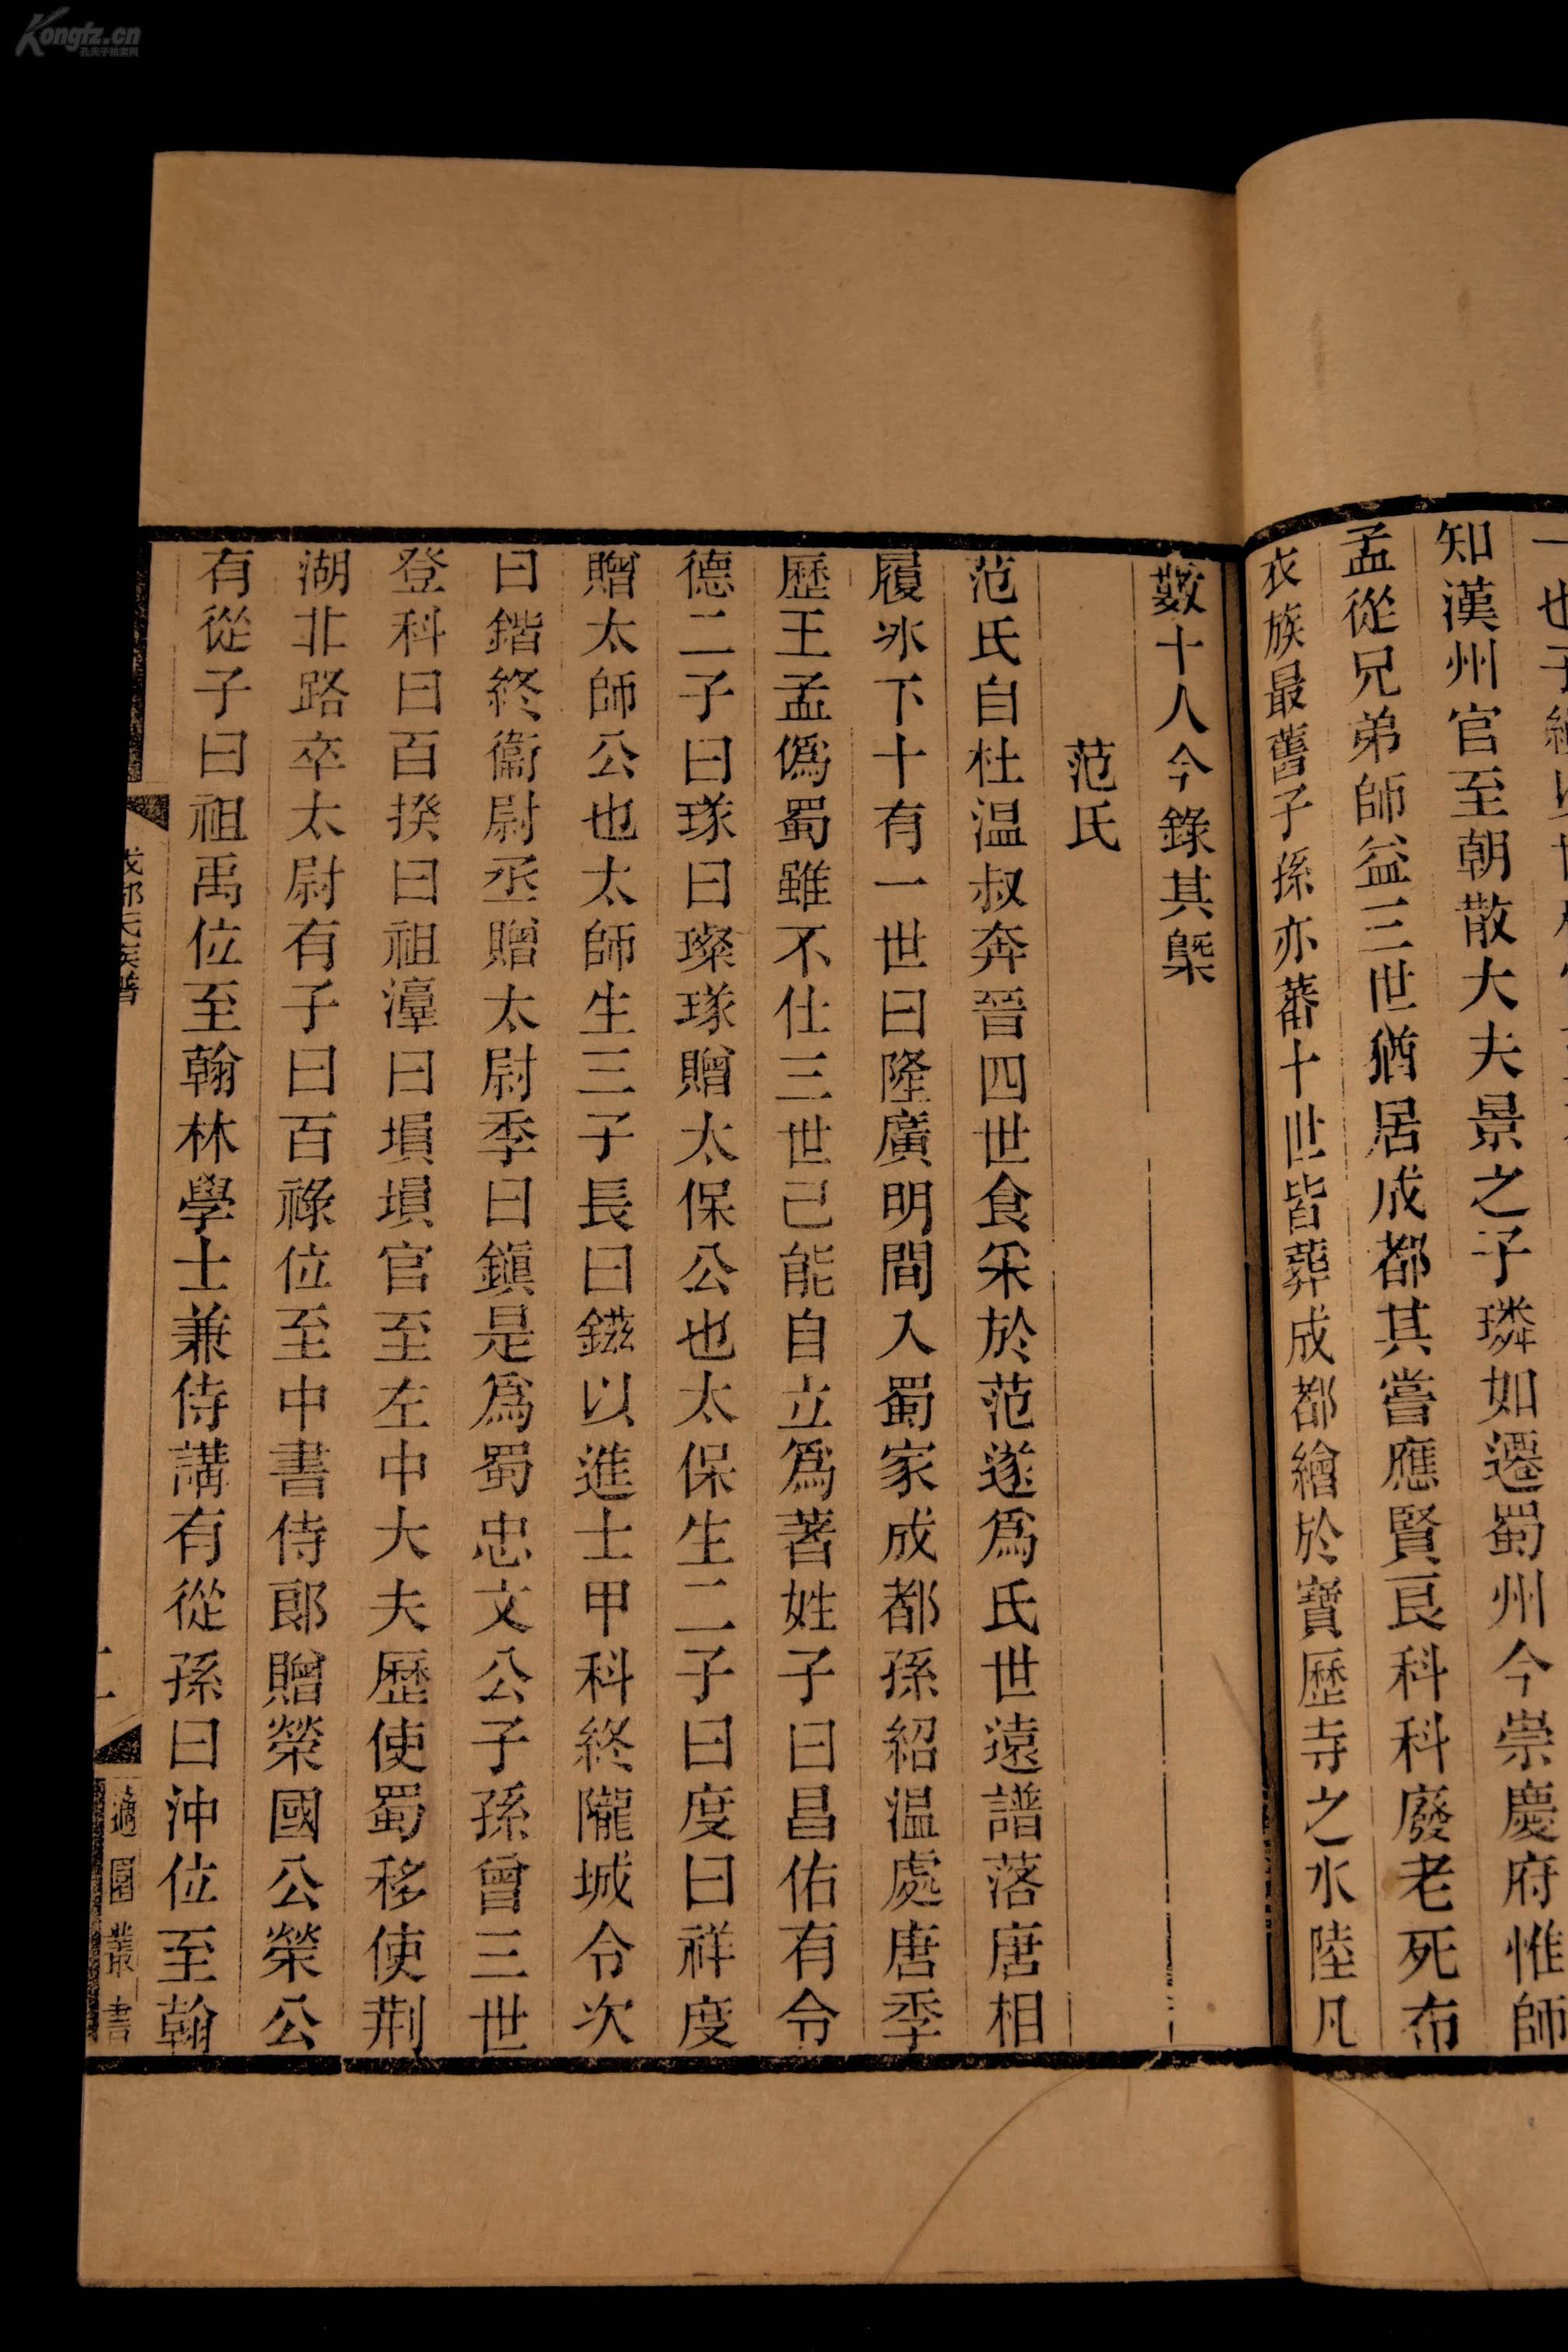 知漢州官至朝散大夫景之子璘如遷蜀州今崇慶府惟師
孟從兄弟師益三世猶居成都其嘗應賢良科科廢老死布
衣族最舊子孫亦蕃十世皆葬成都繪於寶歷寺之水陸凡
數十人今錄其槩
范氏
范氏自杜温叔奔晉四世食采於范遂爲氏世遠譜落唐相
履氷下十有一世曰隆廣明間入蜀家成都孫紹温處唐季
歷王孟僞蜀雖不仕三世已能自立爲著姓子曰昌佑有令
德二子曰璲曰璨璲贈太保公也太保生二子曰度曰祥度
贈太師公也太師生三子長曰鎡以進士甲科終隴城令次
曰鍇終衞尉丞贈太尉季曰鎭是爲蜀忠文公子孫曾三世
登科曰百揆曰祖濬曰塤塤官至左中大夫歷使蜀移使荆
湖北路卒太尉有子曰百祿位至中書侍郎贈榮國公榮公
有從子曰祖禹位至翰林學士兼侍講有從孫曰沖位至翰
成都氏族譜
二
適園叢書
Kongfz.cn
孔夫子拍卖网